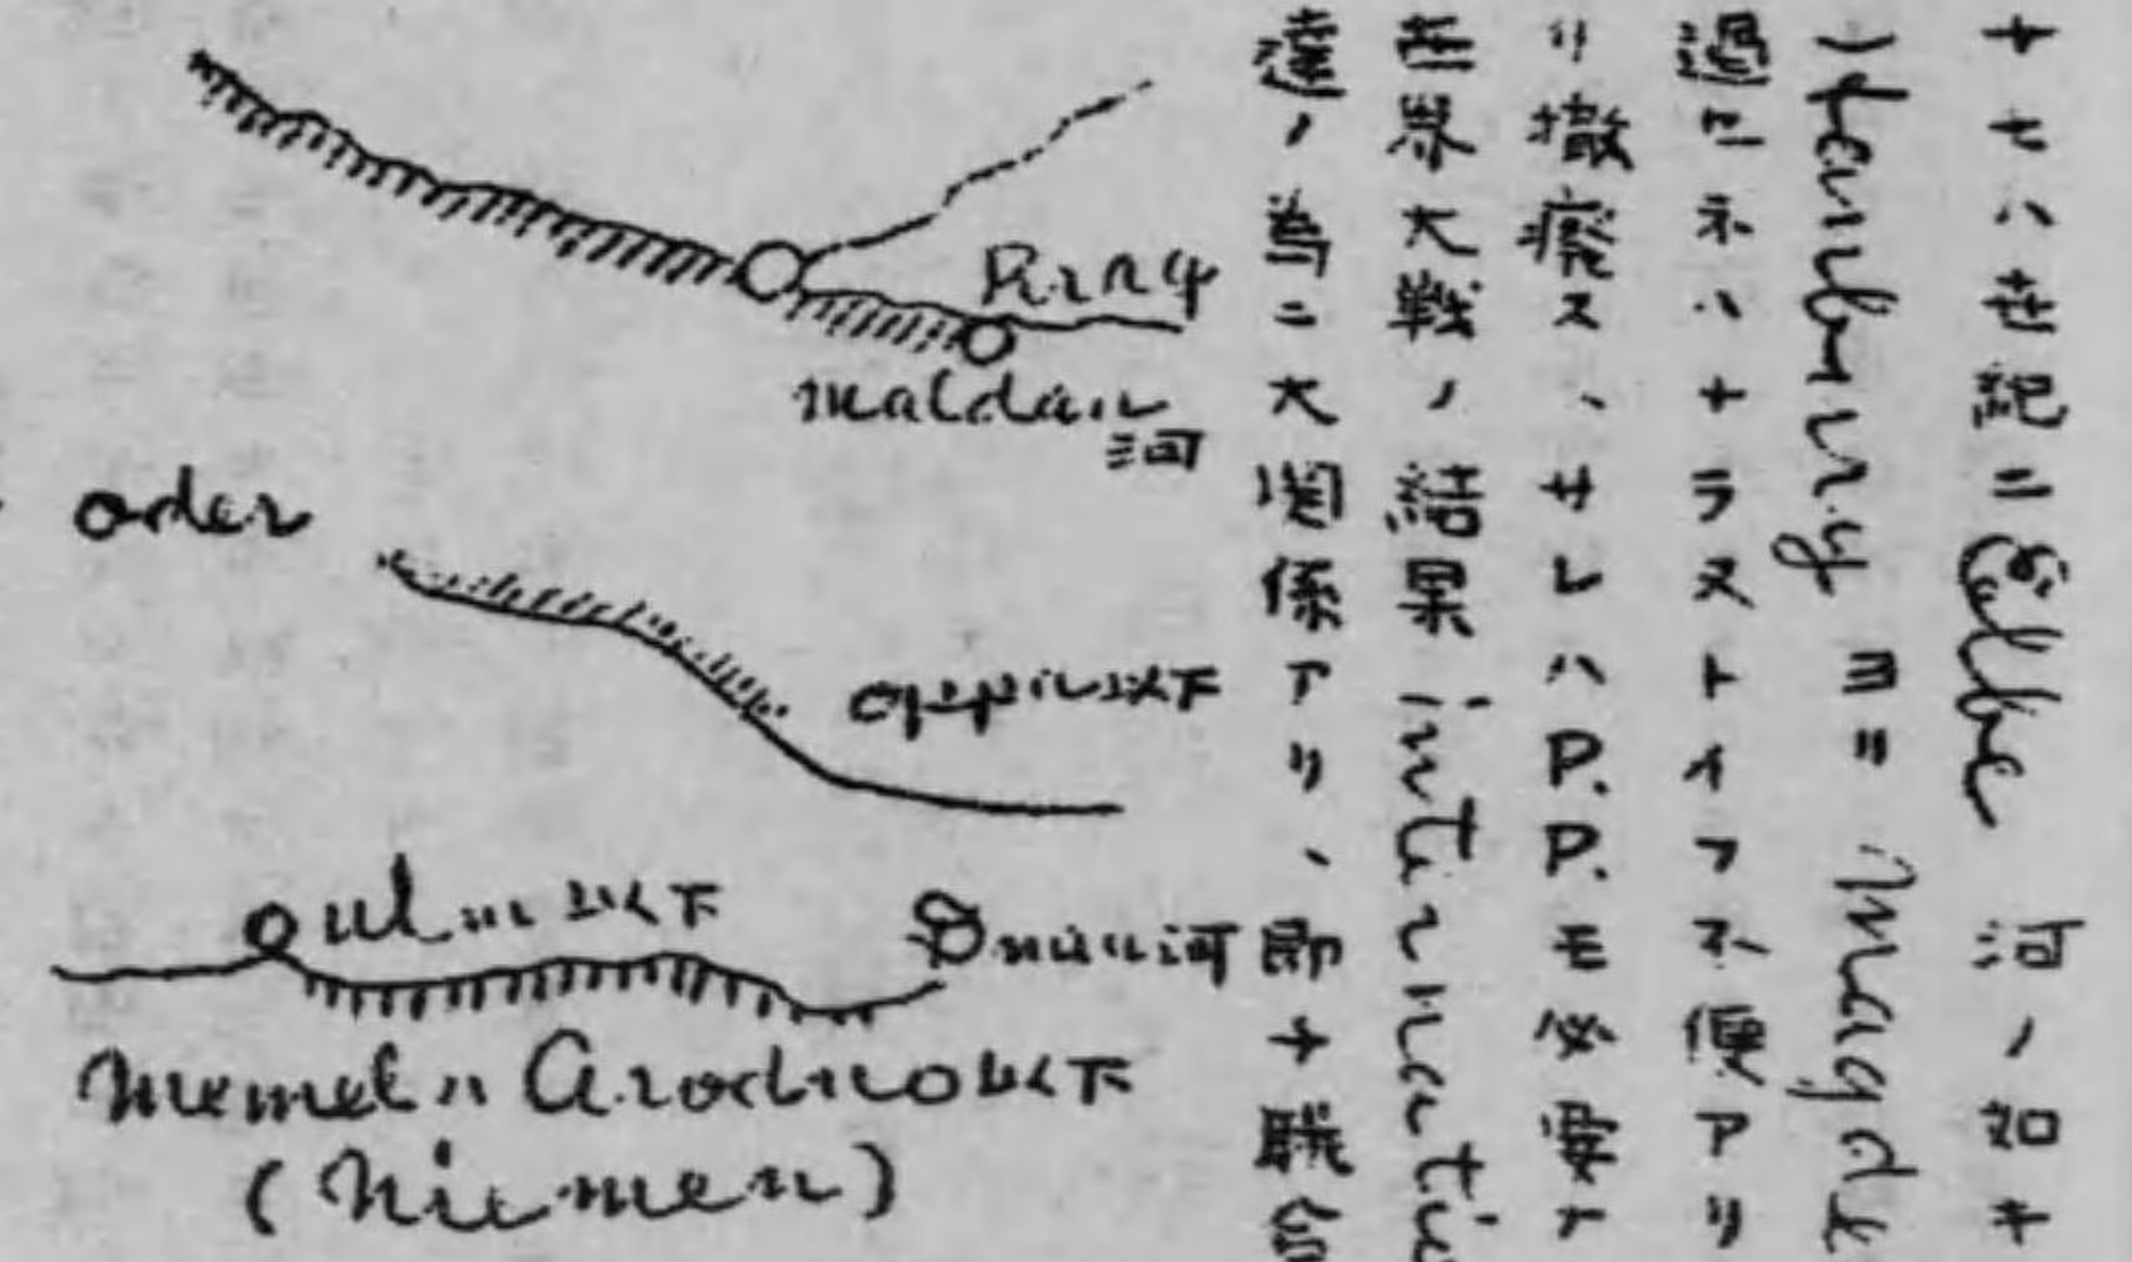 十七八世紀ニ Elbe 河ノ如キ
)tenburny ヨリ Magde
過セネハナラヌトイフ不便アリ
リ撤癈ス、サレハ P. P. モ必要ナ
世界大戦ノ結果 internatio
達ノ為ニ大関係アリ、即チ聯合
Prag
Maldau 河
Oder
Oppeln 以下
Ulm 以下
Donau 河
Memel ハ Grodno 以下
(Niemen)